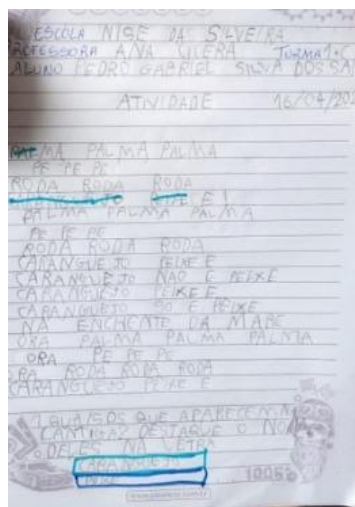 ESCOLA NISE DA SILVEIRA
PROFESSORA ANA TURMA 1º C
ALUNO PEDRO GABRIEL SILVA DOS SA
ATIVIDADE 16/04/202
MA PALMA PALMA
PE PE PE
RODA RODA RODA
PEIXE É!
PALMA PALMA PALMA
PE PE PE
RODA RODA RODA
CARANGUEJO PEIXE E
CARANGUEJO NAO E PEIXE
CARANGUEJO PEIXE E
CARANGUEJO SO E PEIXE
NA ENCHENTE DA MARE
ORA PALMA PALMA PALMA
ORA PE PE PE
ORA RODA RODA RODA
CARANGUEJO PEIXE E
QUAIS OS QUE APARECEM NA
CANTIGA? DESTAQUE O NO
DELES NA LETRA
CARANGUEJO
PEIXE